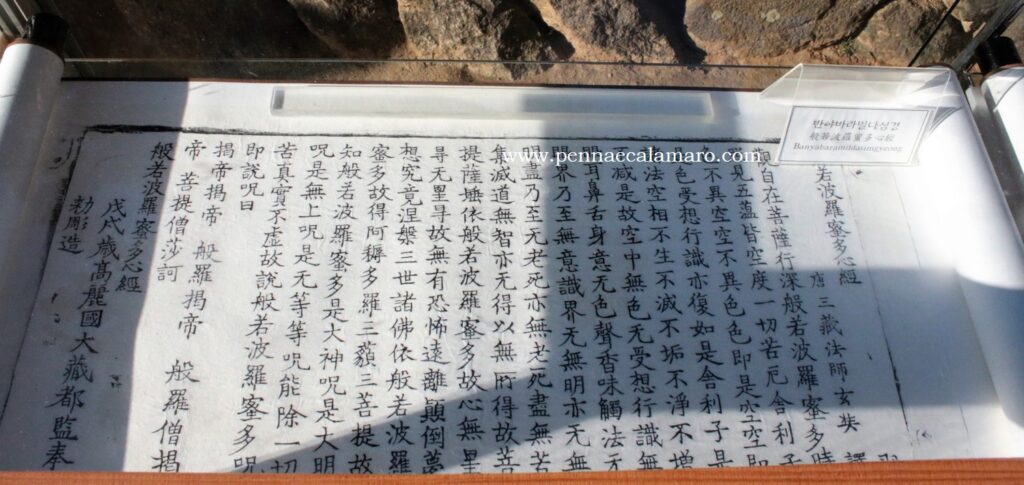 반야바라밀다심경
般若波羅蜜多心經
Banyabaramildasimgyeong
www.pennaecalamaro.com
若波羅蜜多心經
唐三藏法師玄奘 譯
自在菩薩行深般若波羅蜜多時
見五蘊皆空度一切苦厄舍利子
不異空空不異色色即是空空即
色受想行識亦復如是舍利子是
法空相不生不滅不垢不淨不增
不減是故空中無色无受想行識無
耳鼻舌身意无色聲香味觸法无
界乃至無意識界无無明亦无無
明盡乃至无老死亦無老死盡無苦
集滅道無智亦无得以無所得故菩
提薩埵依般若波羅蜜多故心無罣
㝵无罣㝵故無有恐怖遠離顚倒夢
想究竟涅槃三世諸佛依般若波羅
蜜多故得阿耨多羅三藐三菩提故
知般若波羅蜜多是大神呪是大明
呪是無上呪是无等等呪能除一切
苦真實不虛故說般若波羅蜜多呪
即說呪曰
揭帝揭帝 般羅揭帝 般羅僧揭
帝 菩提僧莎訶
般若波羅蜜多心經
戊戌歲高麗國大藏都監奉
勅彫造